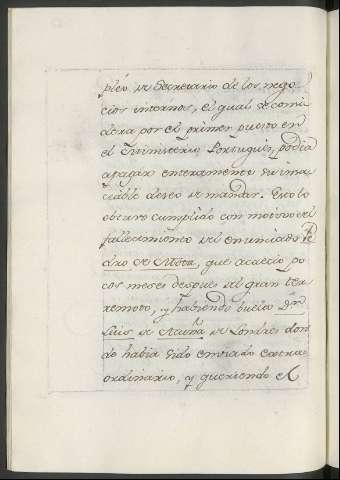 pleo de Secretario de los nego
cios internos, el qual se consi
dera por el primer puesto en
el Ministerio Portugues, podia
apagar enteramente su insa
ciable deseo de mandar. Esto lo
obtuvo cumplido con motivo del
fallecimiento del enunciado Pe
dro de Motta, que acaeciò po
cos meses despues del gran ter
remoto, y habiendo buelto Dn
Luis de Acuña de Londres don
de habia sido embiado extra
ordinario, y queriendo el